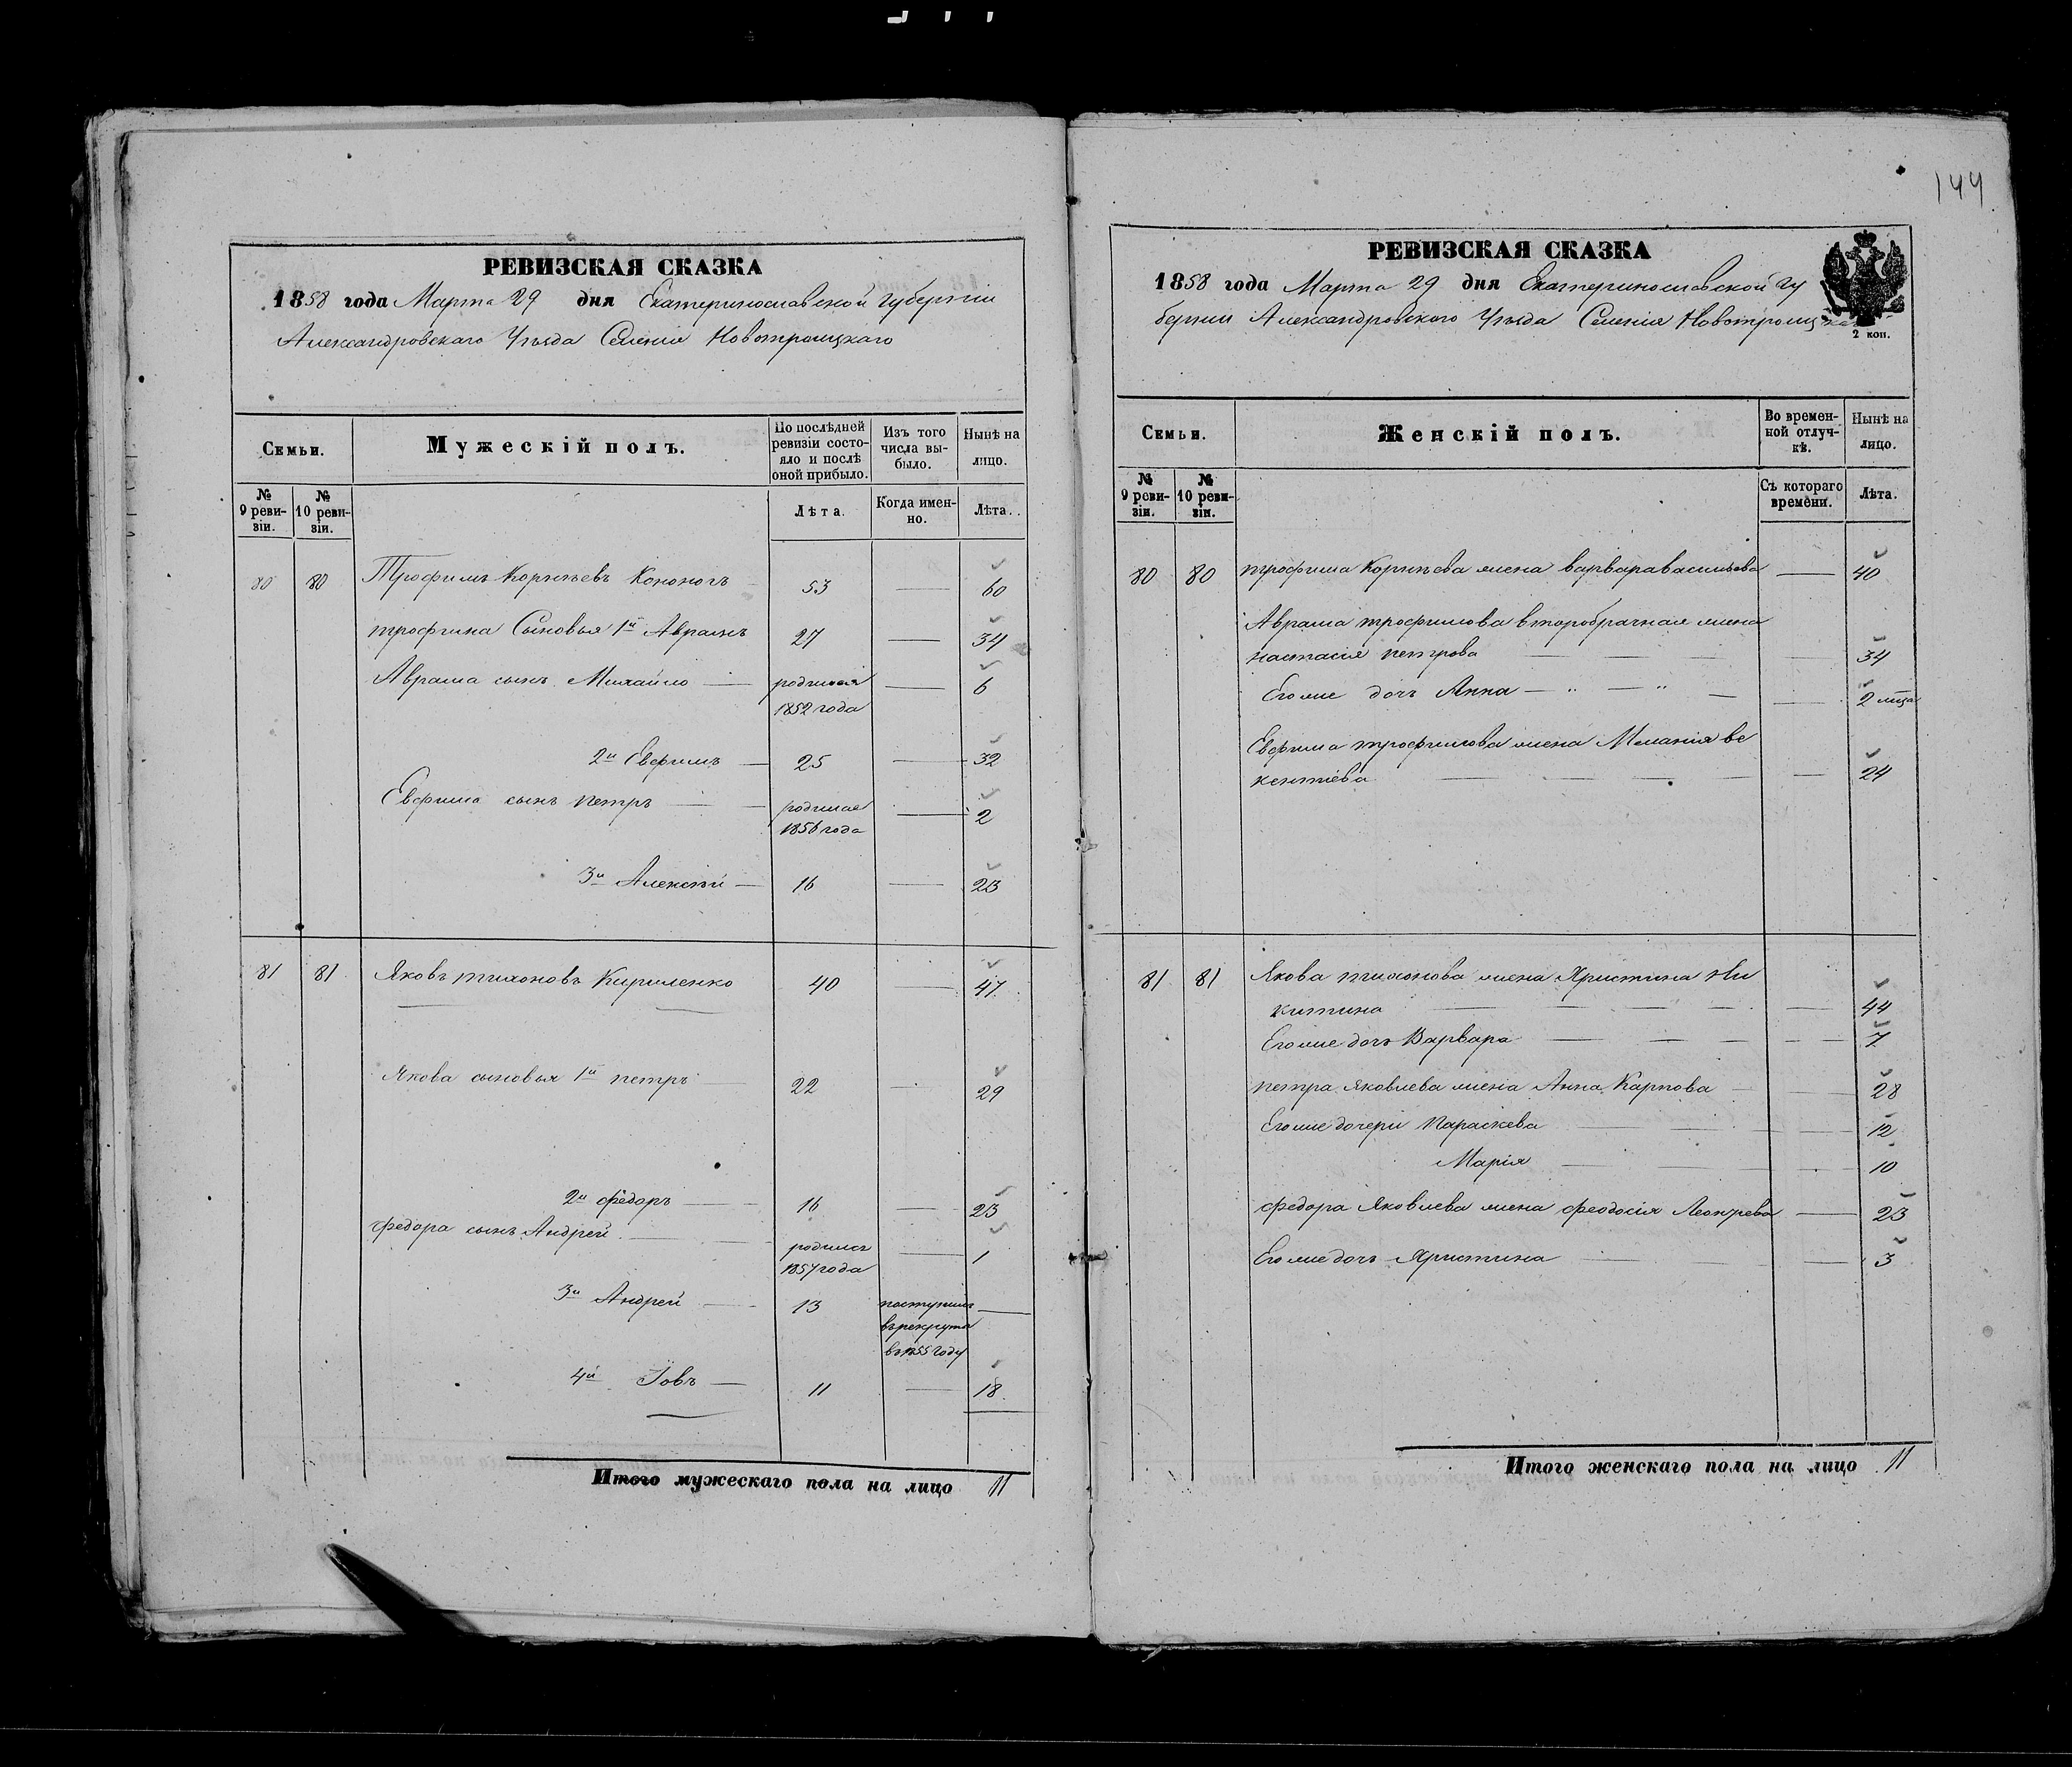 144
РЕВИЗСКАЯ СКАЗКА
1858 года Марта 29 дня Екатеринославской губернiи
Александровскаго Уѣзда Селенiя Новотроицкаго
Семьи.
Мужескiй полъ.
По послѣдней ревизiи состояло и послѣ оной прибыло.
Изъ того числа выбыло.
Нынѣ на лицо.
№ 9 ревизiи.
№ 10 ревизiи.
Лѣта.
Когда именно.
Лѣта.
80 80 Трофимъ Корнѣевъ 53 — 60
трофима Сыновья 1й Авраамъ 27 — 34
Аврама сынъ Михайло — родился — 6
1852 года
2й Евфимъ — 25 — 32
Евфима сынъ петръ — родился — 2
1856 года
3й Алексѣй — 16 — 23
81 81 Яковъ тихоновъ Кириленко 40 — 47
Якова сыновья 1й петръ 22 — 29
2й федоръ — 16 — 23
федора сынъ Андрей — родился — 1
1857 года
3й Андрей — 13 поступилъ —
врекруты
в 1855 году
4й Iовъ — 11 — 18
Итого мужескаго пола на лицо 11
РЕВИЗСКАЯ СКАЗКА
1858 года Марта 29 дня Екатеринославской гу
бернiи Александровскаго Уѣзда Селенiя Новотроицкаго
2 коп.
Семьи.
Женскiй полъ.
Во временной отлучкѣ.
Нынѣ на лицо.
№ 9 ревизiи.
№ 10 ревизiи.
Съ котораго времени.
Лѣта.
80 80 трофима Корнѣева жена варвара васильева — 40
Аврама трофимова второбрачная жена
настасiя петрова — 34
Егоже дочь Анна — 2 мѣсца
Евфима трофимова жена Меланiя ве
кентiева — 24
81 81 Якова тихонова жена Христина Ни
китина — 44
Егоже дочь Варвара — 7
петра Яковлева жена Анна Карпова — 28
Егоже дочери Параскева — 12
Марiя — 10
федора Яковлева жена феодосiя — 23
Егоже дочь Христина — 3
Итого женскаго пола на лицо 11